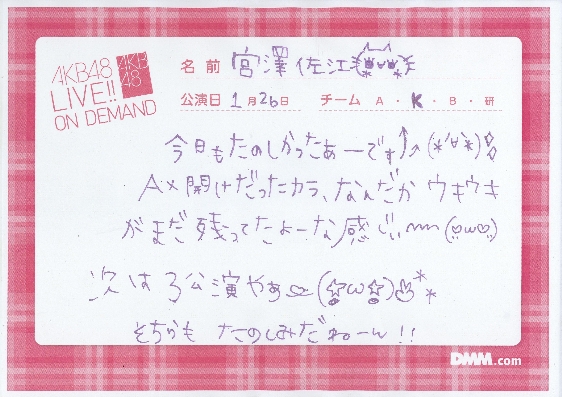 AKB48
LIVE!!
ON DEMAND
AKB
48
名前 宮澤佐江
公演日 1月26日 チーム A・K・B・研
今日もたのしかったぁーです↑↑(*'∀'*)
A×開けだったカラ、なんだか ウキウキ
がまだ残ってたよーな感じ、、〜(♡ω♡)
次は3公演やぁ(☆ω☆)**
そちらも たのしみだねーん!!
DMM.com